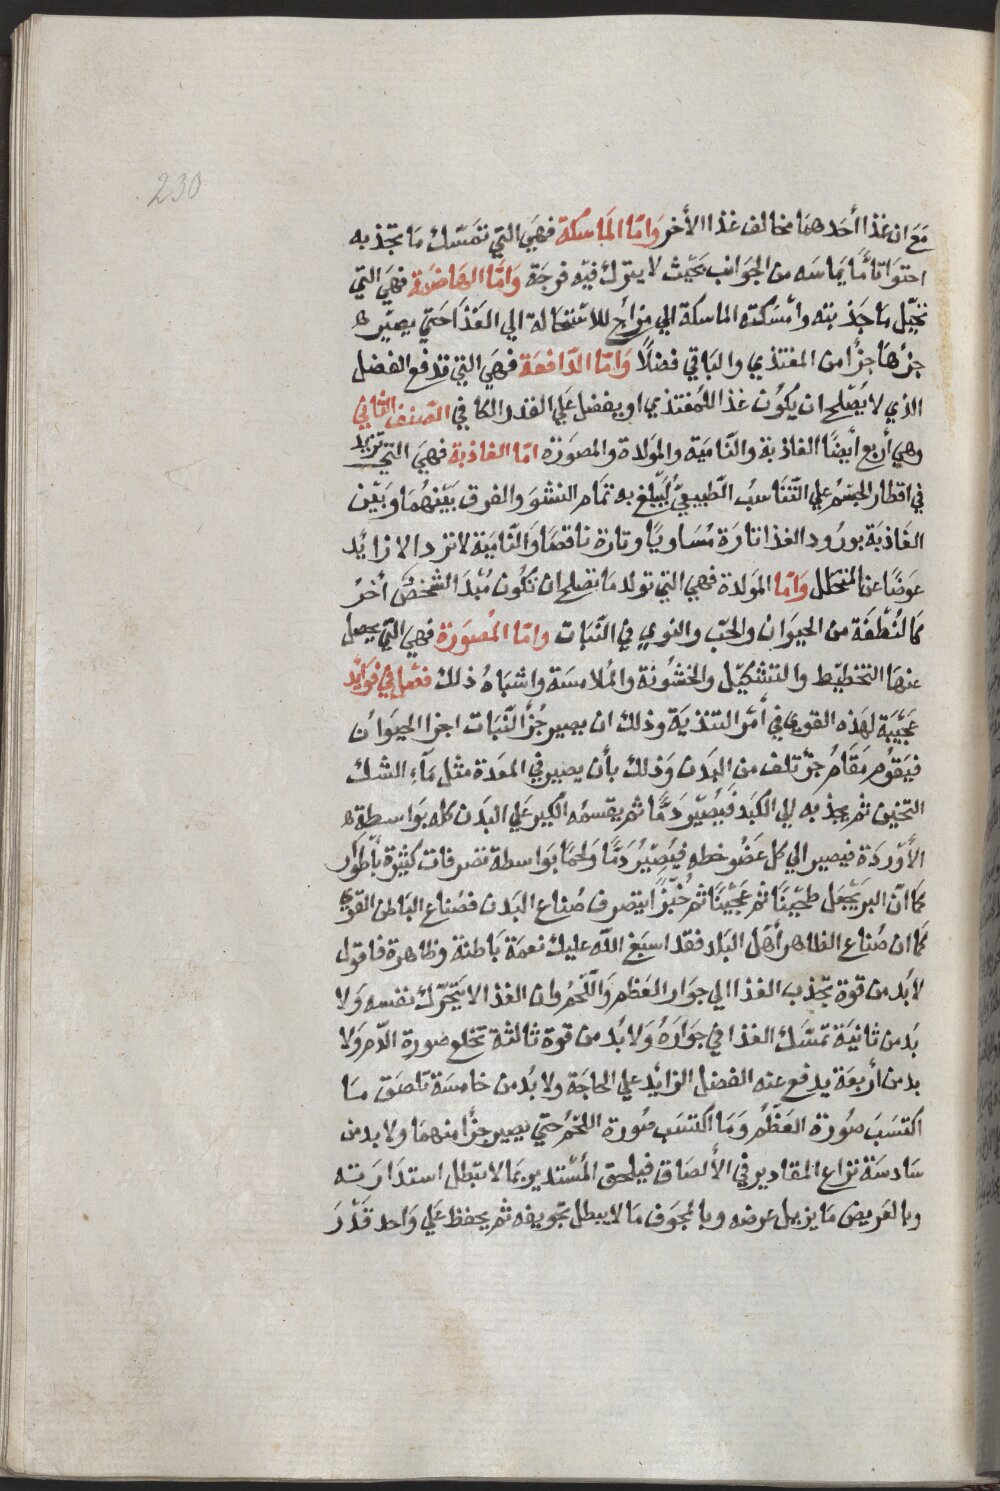 230
مَعَ ان غذا أحَدهمَا مخالف غذا الأخر وَامّا المَاسكة فهيَ التي تمَسّك مَا تجذبه
احتوَا تامًّا يماسَه من الجوَانب بحَيْث لا يترك فيْه فرجَة وَامّا الهَاضمَة فهيَ التي
تحيّل مَا جَذبته وامْسَكته الماسكة الي مزاج للاسْتحَالة الي الغذَا حَتي يصيّر
جزْها جزْأ من المغتذي والبَاقي فضلاً وَامّا الدّافعَة فهيَ التي تدفع الفضل
الذي لا يصْلح ان يكوُن غذا للمُغتذي او يفضل عَلي القدر الكافي الصّنف الثاني
وهي أربع أيضًا الغاذبة والنّاميَة والمَولدة والمصوَرة امّا الغاذبة فهيَ التي تزيد
في اقطار الجسْم علي التّنَاسُب الطّبيعيّ ليَبْلغ به تمَام النشوَ والفرق بَيْنهُمَا وبَيْن
الغَاذبَة بورُود الغذا تارَة مُسَاويًا وتارة ناقصًا وَالنّاميَة لا تزد الا زايْد
عوَضًا عن المتحَلل وَامّا المَولدة فهي التي تولد مَا تصْلح ان تكُون مُبْدَا لشخصٌ أخرُ
كالنُطْفَة من الحيوَان والحَبّ والنوي في النّبَات وامّا المُصوَرة فهيَ التّي يحصل
عنهَا التخطيْط والتشكيّل والخشوُنة والمُلامسَة واشبَاهُ ذلك فصْل في فوَايْد
عجَيْبَة لهَذه القوي في أمْر التنذيَة وذلك ان يصير جُزْ النّبَات اجزا الحيوَان
فيَقوُم مقَامُ جزْ تلف من البَدَن وَذلك بأن يصير في المعَدة مثل مَاءِ الشك
الثخين ثم يجذبه إلي الكبَد فيُصيّر دَمًّا ثم يقسمُه الكبير عَلي البدَن كله بوَاسطة
الأوْردَة فيصير الي كل عَضو خطه فيَصِيْرُ دَمًّا وَلحمًا بوَاسطة تصرفات كثيْرة بأطوَار
كمَا انّ البر يجْعَل طحْينًا ثم عَجْينًا ثم خُبْزًا يتصرف صُناع البَدن فصُناع البَاطن القوي
كمَا ان صُناع الظاهر أهْل البَلد فقد اسبَغ الله عليك نعمَة بَاطنة وظاهرة فاقول
لا بُد من قوة تجْذب الغذا الي جوَار العَظم وَاللّحمُ وان الغذا لا يَتحْرّك بنفسه وَلا
بُد من ثانيَة تمَسّك الغذا في جوَارَهُ وَلا بُد من قوة ثالثة تخلع صورة الدّم وَلا
بد من أربعَة يدفع عنه الفضل الزايْد علي الحاجَة ولا بُد من خامسَة تلصق مَا
اكتسَبَ صوُرة العَظْمُ وَمَا اكتسَب صُورة اللحْمُ حتّي يصير جزْأ منهمَا ولا بد من
سَادسَة تراع المقادير في الألصَاق فيلحق المُسْتدير بمَا لا تبطل استدَارَته
وبالعَريض مَا يزيل عرضه وبالمُجوَف مَا لا يبطل تجْويفه ثم يحفظ عَلي وَاحد قَدْرَ